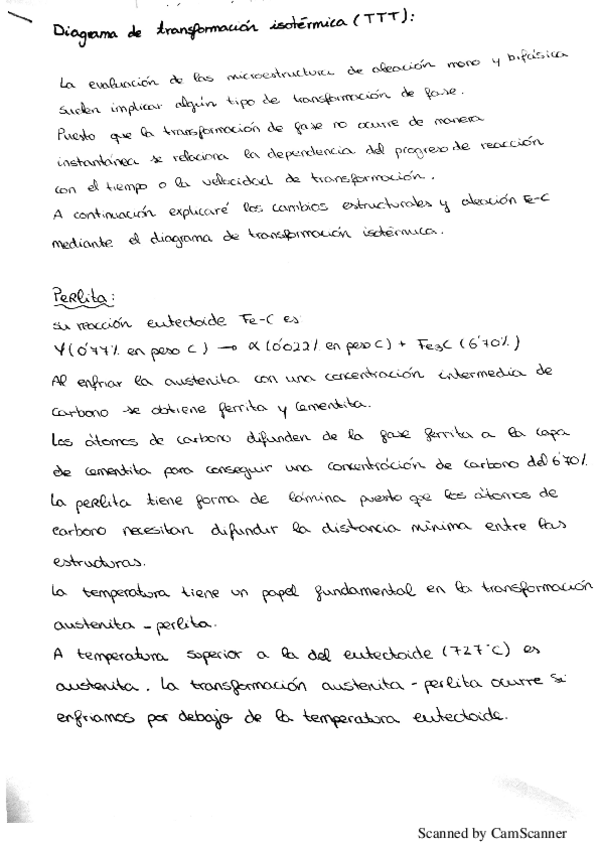 Diagrama de transformación isotérmica (TTT):
La evaluación de las microestructuras de aleación mono y bifásica
suelen implicar algún tipo de transformación de fase.
Puesto que la transformación de fase no ocurre de manera
instantánea se relaciona la dependencia del progreso de reacción
con el tiempo o la velocidad de transformación.
A continuación explicaré los cambios estructurales y aleación Fe-C
mediante el diagrama de transformación isotérmica.
Perlita:
su reacción eutectoide Fe-C es
γ (0'77% en peso C) → α (0'022% en peso C) + Fe3C (6'70%)
Al enfriar la austenita con una concentración intermedia de
carbono se obtiene ferrita y cementita.
Los átomos de carbono difunden de la fase ferrita a la capa
de cementita para conseguir una concentración de carbono del 6'70%.
La perlita tiene forma de lámina puesto que los átomos de
carbono necesitan difundir la distancia mínima entre las
estructuras.
La temperatura tiene un papel fundamental en la transformación
austenita - perlita.
A temperatura superior a la del eutectoide (727°C) es
austenita. La transformación austenita - perlita ocurre si
enfriamos por debajo de la temperatura eutectoide.
Scanned by CamScanner